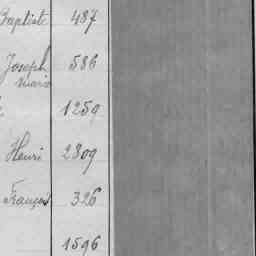 Baptiste 487
Joseph 586
Marie
1259
Henri 2809
François 326
1596